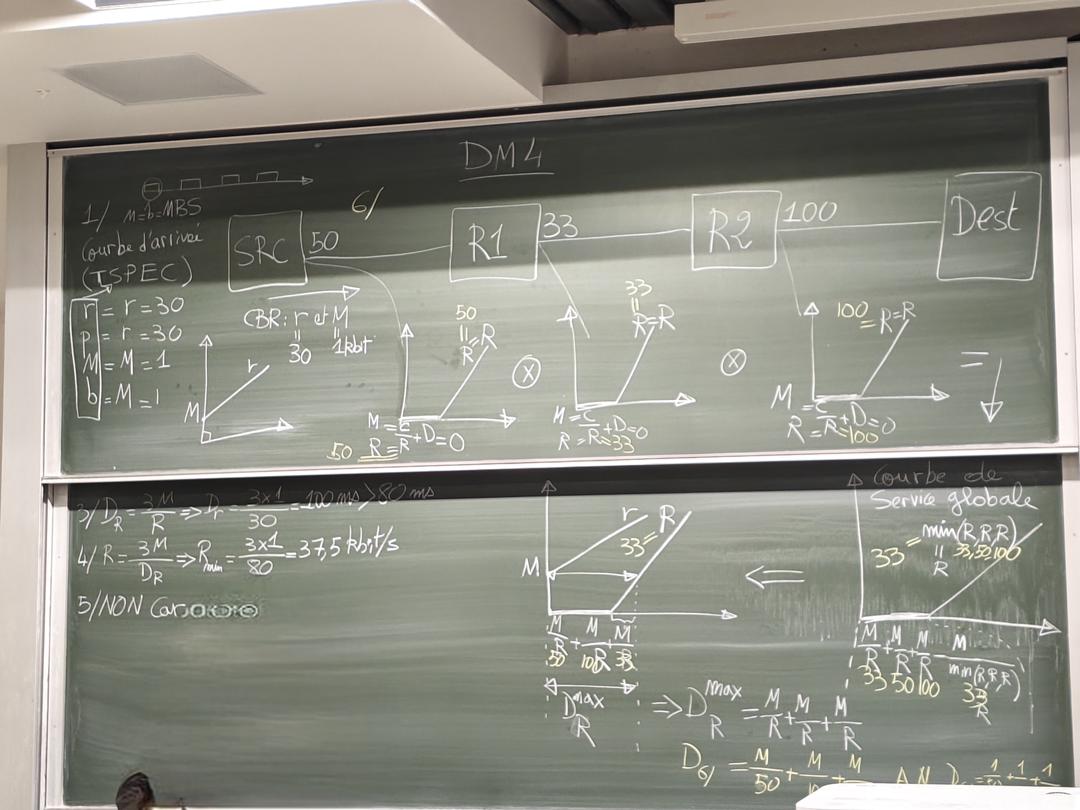 DM4
1/ M=b=MBS
Courbe d'arrivée
(TSPEC)
r = r = 30
p = r = 30
M = M = 1
b = M = 1
M
r
SRC
50
6/
R1
33
R2
100
Dest
CBR: r et M
=
30
=
1kbit
50
=
R=R
M = C/R + D = 0
50 = R = R
⊗
33
=
R=R
M = C/R + D = 0
R = R = 33
⊗
100 = R=R
M = C/R + D = 0
R = R = 100
=
3/ D_R = 3M/R ⇒ D_r = 3x1/30 = 100 ms > 80 ms
4/ R = 3M/D_R ⇒ R_min = 3x1/80 = 37,5 kbit/s
5/ NON Car
r
33 = R
M
M/R + M/R + M/R
50 100 33
D_R^max
⇐
Courbe de
Service globale
33 = min(R,R,R)
= 33,50,100
R
M/R + M/R + M/R
M/min(R,R,R)
33 50 100
33
R
⇒ D_R^max = M/R + M/R + M/R
D_6/ = M/50 + M/ + M
A.N